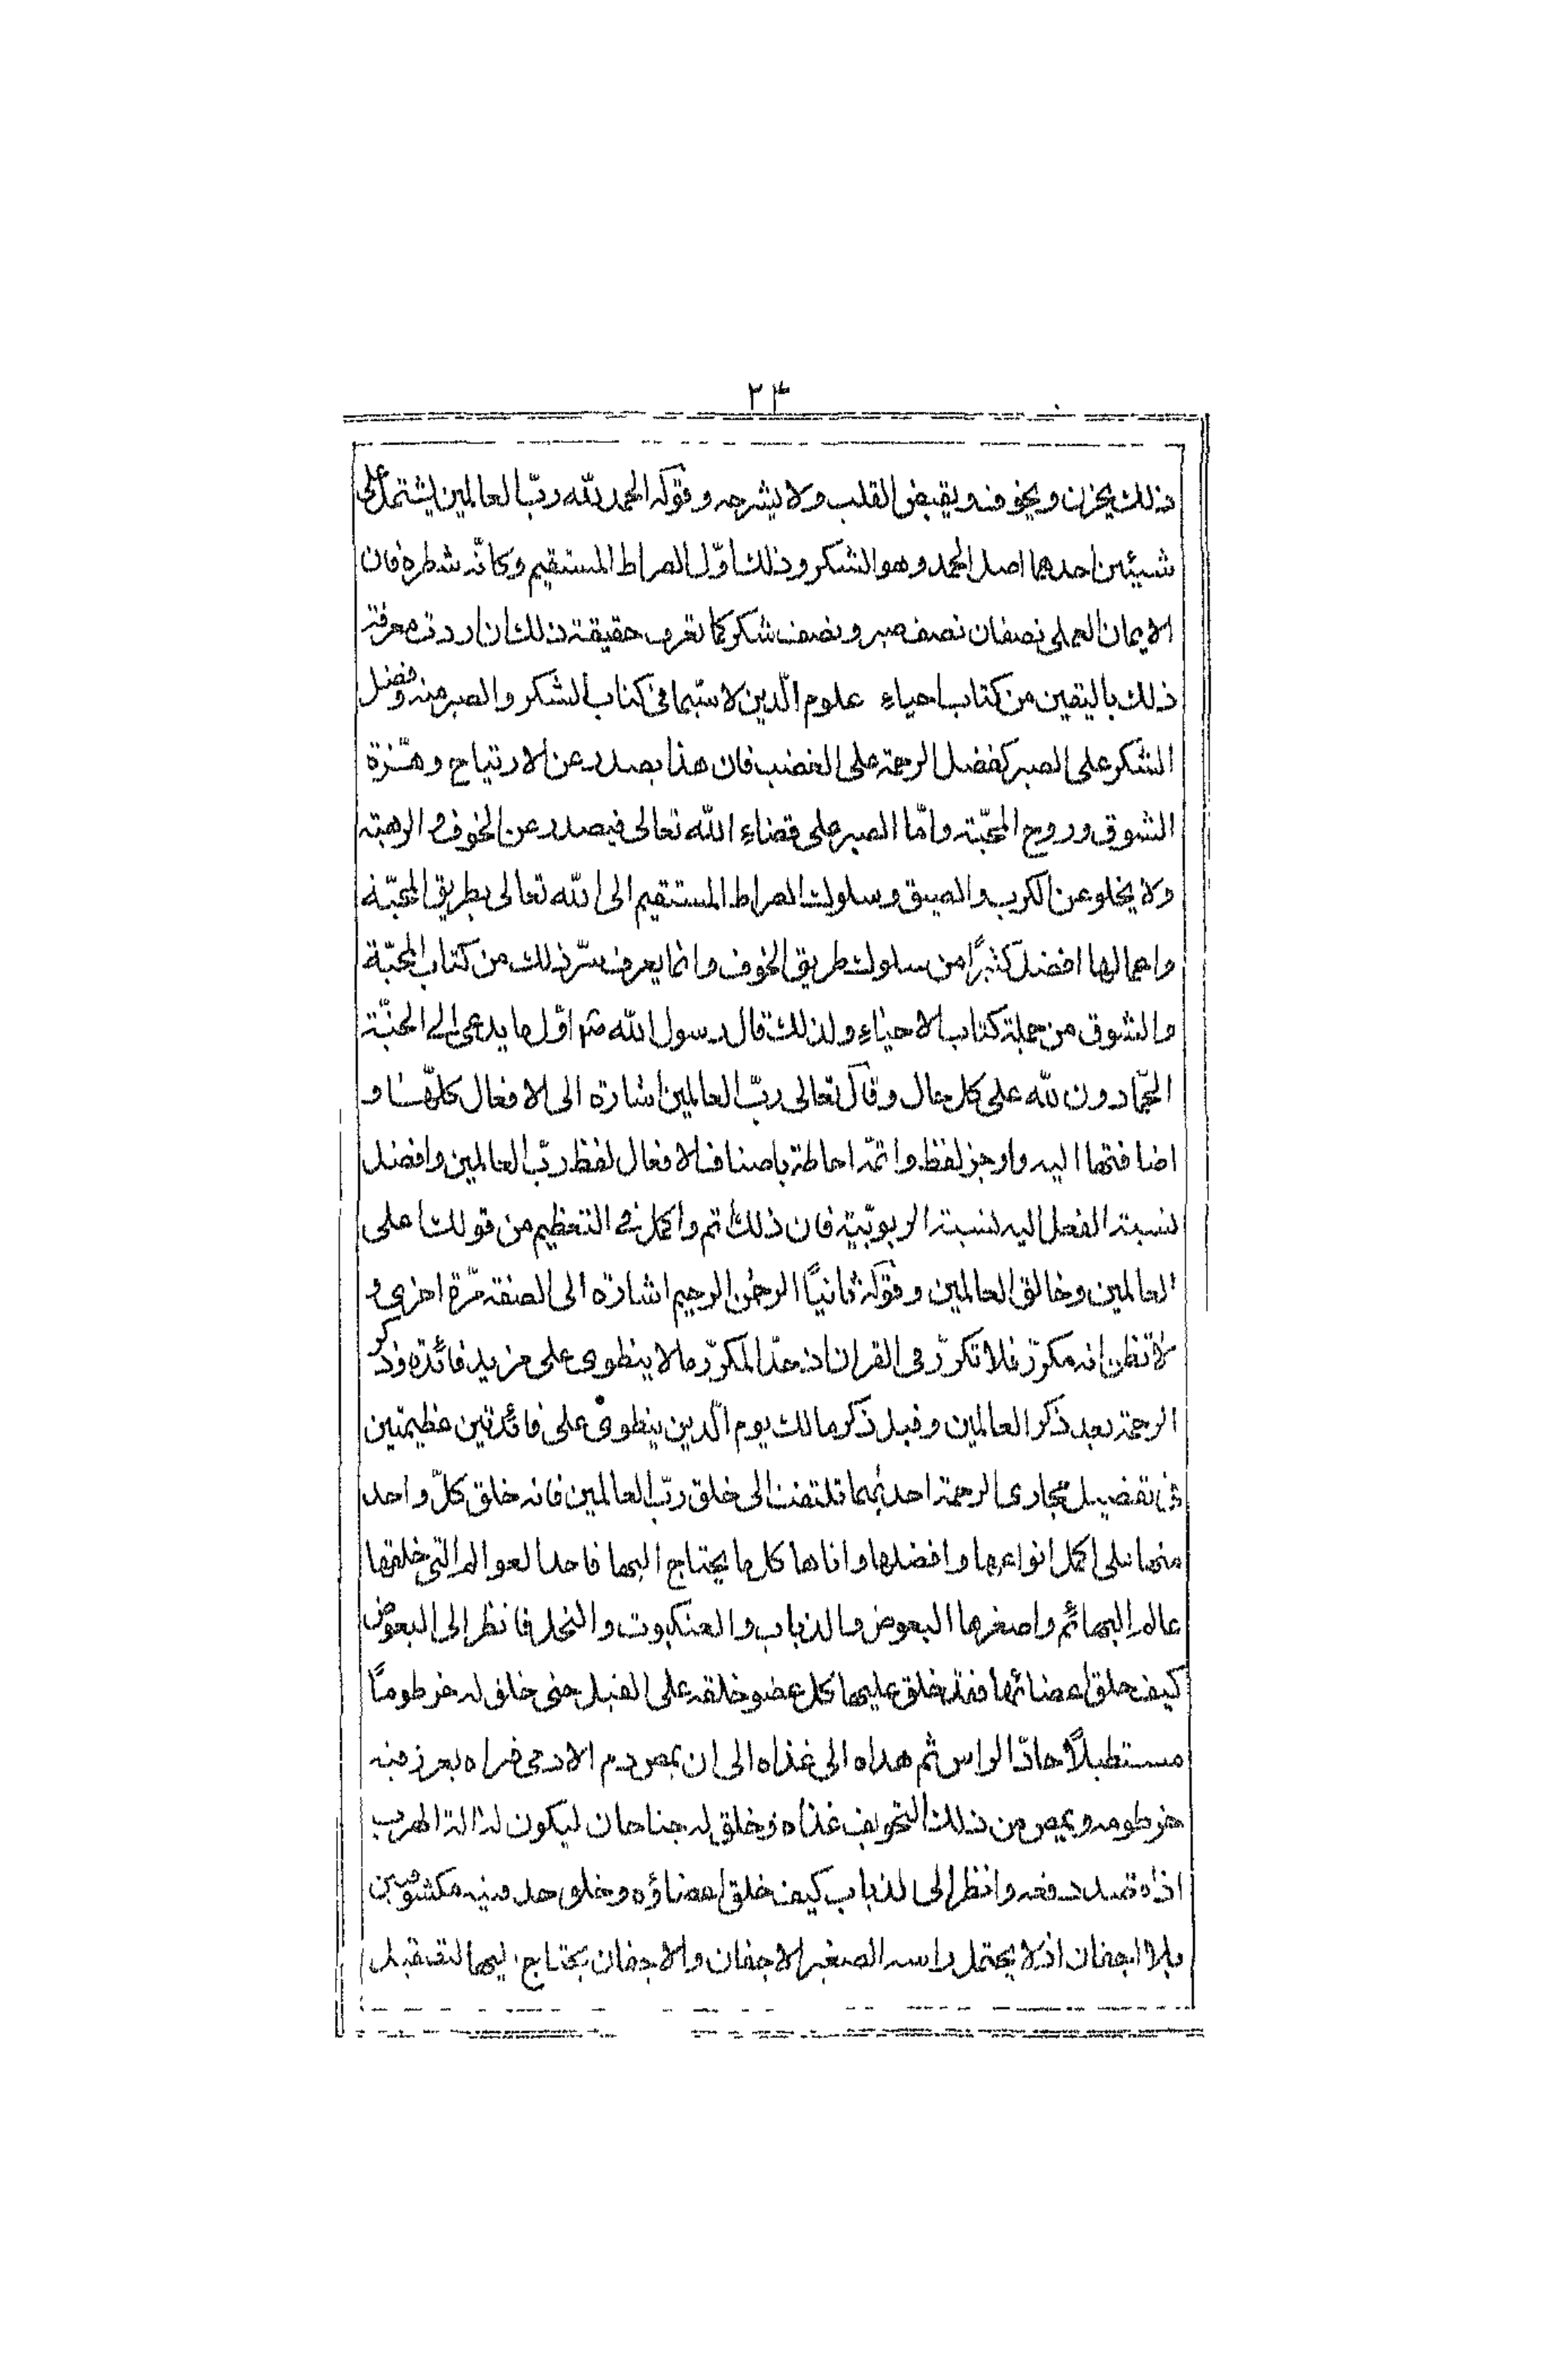 ٢٤
ذلك يحزن ويخوف ويقبض القلب ولا يشرحه وقوله الحمد لله ربّ العالمين يشتمل على
شيئين احدهما اصل الحمد وهو الشكر وذلك اوّل الصراط المستقيم وكانّه شطره فان
الايمان العملى نصفان نصف صبر ونصف شكر كما تعرف حقيقة ذلك ان اردت معرفة
ذلك باليقين من كتاب احياء علوم الّدين لا سيّما فى كتاب الشكر والصبر منه وفضل
الشكر على الصبر كفضل الرحمة على الغضب فان هذا يصدر عن الارتياح وهزّة
الشوق وروح المحبّة وامّا الصبر على قضاء الله تعالى فيصدر عن الخوف والرهبة
ولا يخلو عن الكرب والضيق وسلوك الصراط المستقيم الى الله تعالى بطريق المحبّة
واعمالها افضل كثيرًا من سلوك طريق الخوف وانما يعرف سرّ ذلك من كتاب المحبّة
والشوق من جملة كتاب الاحياء ولذلك قال رسول الله صم اوّل ما يدعى الى الجنّة
الحمّادون لله على كل حال وقال تعالى ربّ العالمين اشارة الى الافعال كلّها و
اضافتها اليه واوجز لفظ واتمّه احاطة باصناف الافعال لفظ ربّ العالمين وافضل
نسبة الفعل اليه نسبة الربوبّية فان ذلك اتم واكمل فى التعظيم من قولك اعلى
العالمين وخالق العالمين وقوله ثانيًا الرحمن الرحيم اشارة الى الصفة مرّة اخرى و
لا تظن انه مكرّر فلا تكرّر فى القران اذ حدّ المكرّر ما لا ينطوى على مزيد فائدة وذكر
الرحمة بعد ذكر العالمين وقبل ذكر مالك يوم الّدين ينطوى على فائدتين عظيمتين
فى تفضيل مجارى الرحمة احدٰيهما تلتفت الى خلق ربّ العالمين فانه خلق كلّ واحد
منها على اكمل انواعها وافضلها واتاها كل ما يحتاج اليها فاحد العوالم التى خلقها
عالم البهائم واصغرها البعوض والذباب والعنكبوت والنحل فانظر الى البعوض
كيف خلق اعضائها فقد خلق عليها كل عضو خلقه على الفيل حتى خلق له خرطومًا
مستطيلًا حادّ الراس ثم هداه الى غذاه الى ان يمص دم الادمى فراه يغرز فيه
خرطومه ويمص من ذلك التجويف غذاه وخلق له جناحان ليكون له الة الهرب
اذا قصد دفعه وانظر الى الذباب كيف خلق اعضاؤه وخلق حدقتيه مكشوفتين
بلا اجفان اذ لا يحتمل راسه الصغير الاجفان والاجفان يحتاج اليها لتصقيل